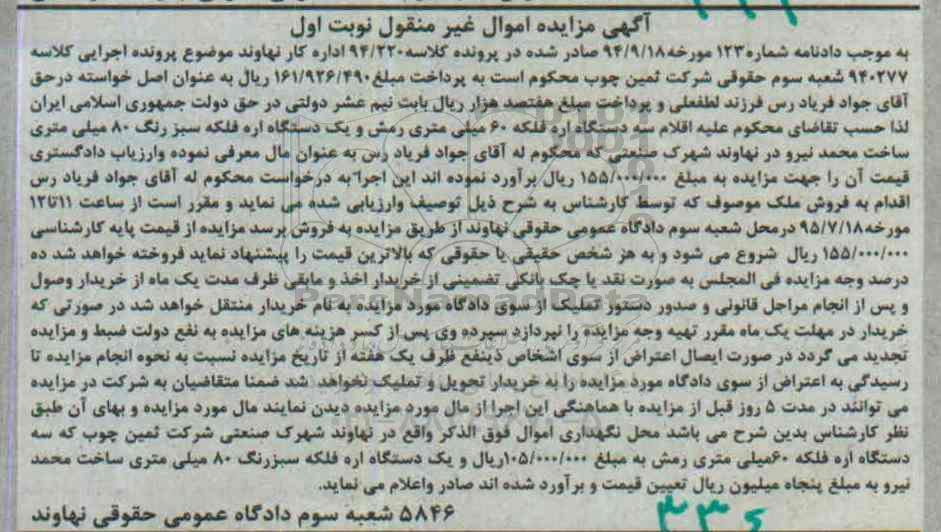 آگهی مزایده اموال غیر منقول نوبت اول
به موجب دادنامه شماره ۱۲۳ مورخه ۹۴/۹/۱۸ صادر شده در پرونده کلاسه ۹۴/۲۲۰ اداره کار نهاوند موضوع پرونده اجرایی کلاسه
۹۴۰۲۷۷ شعبه سوم حقوقی شرکت ثمین چوب محکوم است به پرداخت مبلغ ۱۶۱/۹۲۶/۴۹۰ ریال به عنوان اصل خواسته درحق
آقای جواد فریاد رس فرزند لطفعلی و پرداخت مبلغ هفتصد هزار ریال بابت نیم عشر دولتی در حق دولت جمهوری اسلامی ایران
لذا حسب تقاضای محکوم علیه اقلام سه دستگاه اره فلکه ۶۰ میلی متری رمش و یک دستگاه اره فلکه سبز رنگ ۸۰ میلی متری
ساخت محمد نیرو در نهاوند شهرک صنعتی که محکوم له آقای جواد فریاد رس به عنوان مال معرفی نموده وارزیاب دادگستری
قیمت آن را جهت مزایده به مبلغ ۱۵۵/۰۰۰/۰۰۰ ریال برآورد نموده اند این اجرا به درخواست محکوم له آقای جواد فریاد رس
اقدام به فروش ملک موصوف که توسط کارشناس به شرح ذیل توصیف وارزیابی شده می نماید و مقرر است از ساعت ۱۱تا۱۲
مورخه ۹۵/۷/۱۸ درمحل شعبه سوم دادگاه عمومی حقوقی نهاوند از طریق مزایده به فروش برسد مزایده از قیمت پایه کارشناسی
۱۵۵/۰۰۰/۰۰۰ ریال شروع می شود و به هر شخص حقیقی یا حقوقی که بالاترین قیمت را پیشنهاد نماید فروخته خواهد شد ده
درصد وجه مزایده فی المجلس به صورت نقد یا چک بانکی تضمینی از خریدار اخذ و مابقی ظرف مدت یک ماه از خریدار وصول
و پس از انجام مراحل قانونی و صدور دستور تملیک از سوی دادگاه مورد مزایده به نام خریدار منتقل خواهد شد در صورتی که
خریدار در مهلت یک ماه مقرر تهیه وجه مزایده را نپردازد سپرده وی پس از کسر هزینه های مزایده به نفع دولت ضبط و مزایده
تجدید می گردد در صورت ایصال اعتراض از سوی اشخاص ذینفع ظرف یک هفته از تاریخ مزایده نسبت به نحوه انجام مزایده تا
رسیدگی به اعتراض از سوی دادگاه مورد مزایده را به خریدار تحویل و تملیک نخواهد شد ضمنا متقاضیان به شرکت در مزایده
می توانند در مدت ۵ روز قبل از مزایده با هماهنگی این اجرا از مال مورد مزایده دیدن نمایند مال مورد مزایده و بهای آن طبق
نظر کارشناس بدین شرح می باشد محل نگهداری اموال فوق الذکر واقع در نهاوند شهرک صنعتی شرکت ثمین چوب که سه
دستگاه اره فلکه ۶۰میلی متری رمش به مبلغ ۱۰۵/۰۰۰/۰۰۰ریال و یک دستگاه اره فلکه سبزرنگ ۸۰ میلی متری ساخت محمد
نیرو به مبلغ پنجاه میلیون ریال تعیین قیمت و برآورد شده اند صادر واعلام می نماید.
۵۸۴۶ شعبه سوم دادگاه عمومی حقوقی نهاوند